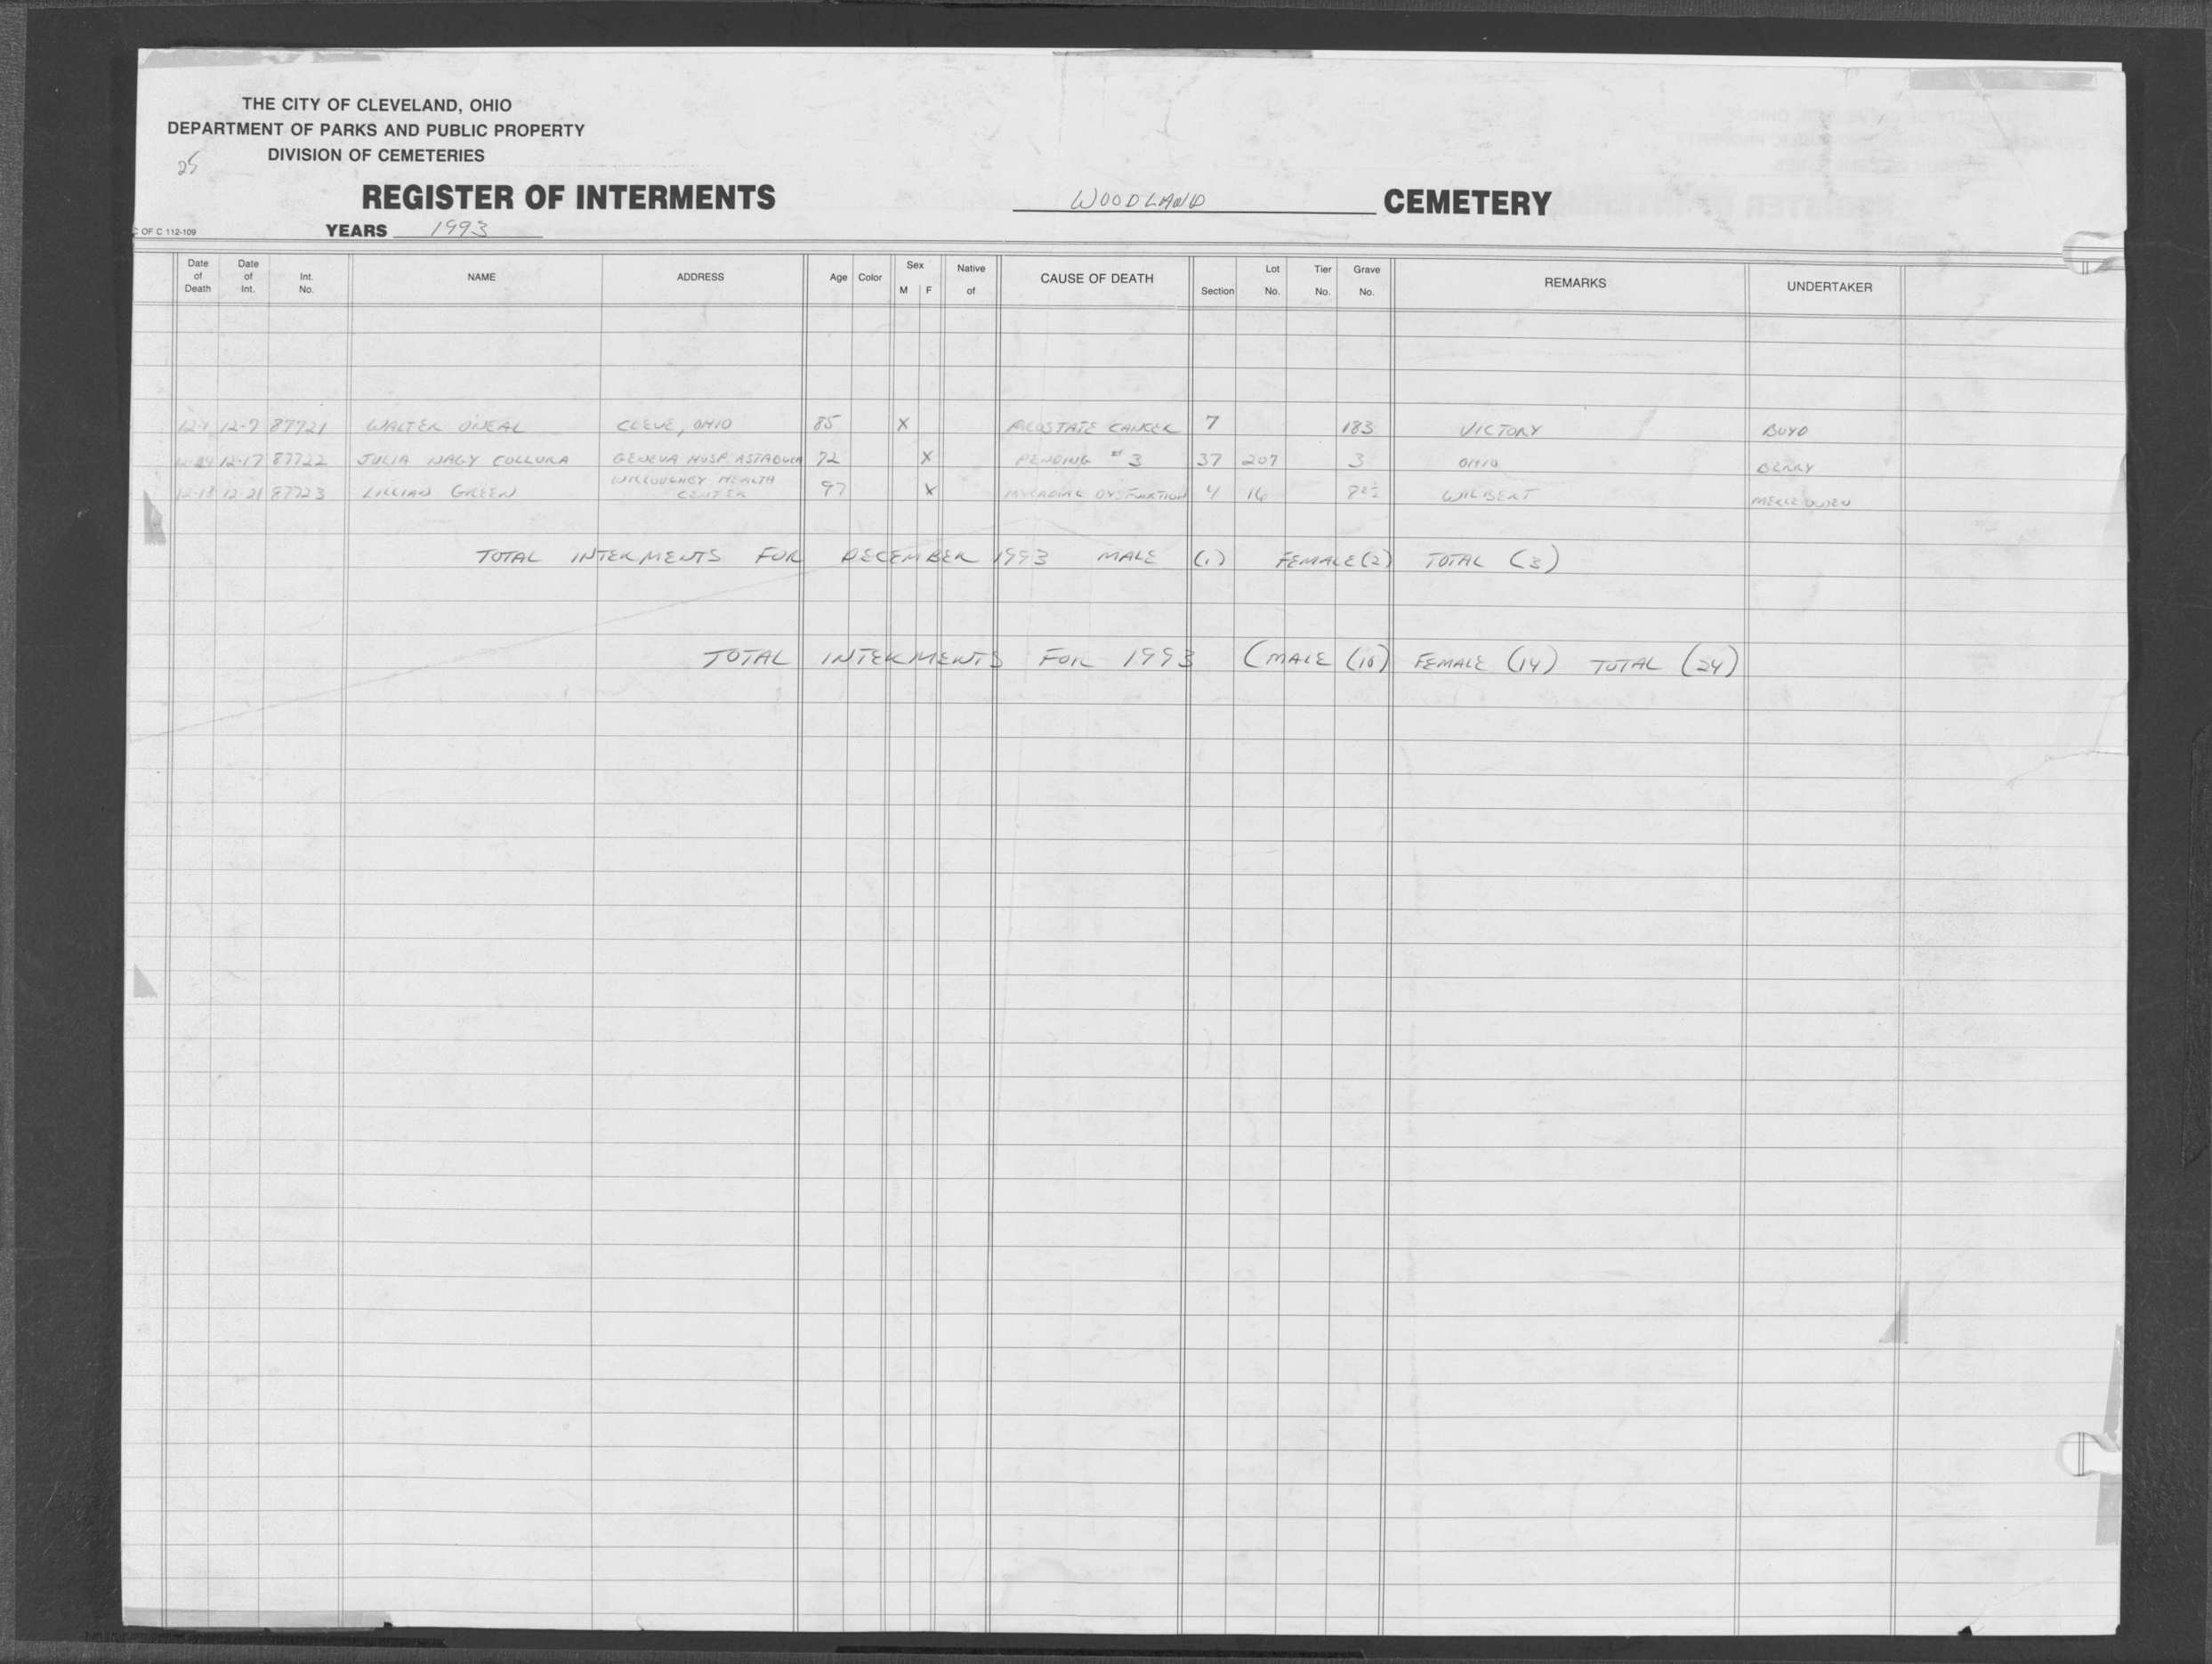 THE CITY OF CLEVELAND, OHIO
DEPARTMENT OF PARKS AND PUBLIC PROPERTY
DIVISION OF CEMETERIES
25
REGISTER OF INTERMENTS WOODLAND CEMETERY
C OF C 112-109 YEARS 1993
Date of Death Date of Int. Int. No. NAME ADDRESS Age Color Sex M F Native of CAUSE OF DEATH Section Lot No. Tier No. Grave No. REMARKS UNDERTAKER
12-1 12-7 87721 WALTER ONEAL CLEVE, OHIO 85 X PROSTATE CANCER 7 183 VICTORY BOYD
12-17 87722 JULIA NAGY COLLURA GENEVA HOSP. ASTABULA 72 X PENDING #3 37 207 3 OHIO BERRY
12-18 12-21 87723 LILLIAN GREEN WILLOUGHBY HEALTH CENTER 97 X DYSFUNCTION 4 16 WILBERT
TOTAL INTERMENTS FOR DECEMBER 1993 MALE (1) FEMALE (2) TOTAL (3)
TOTAL INTERMENTS FOR 1993 (MALE (10) FEMALE (14) TOTAL (24)